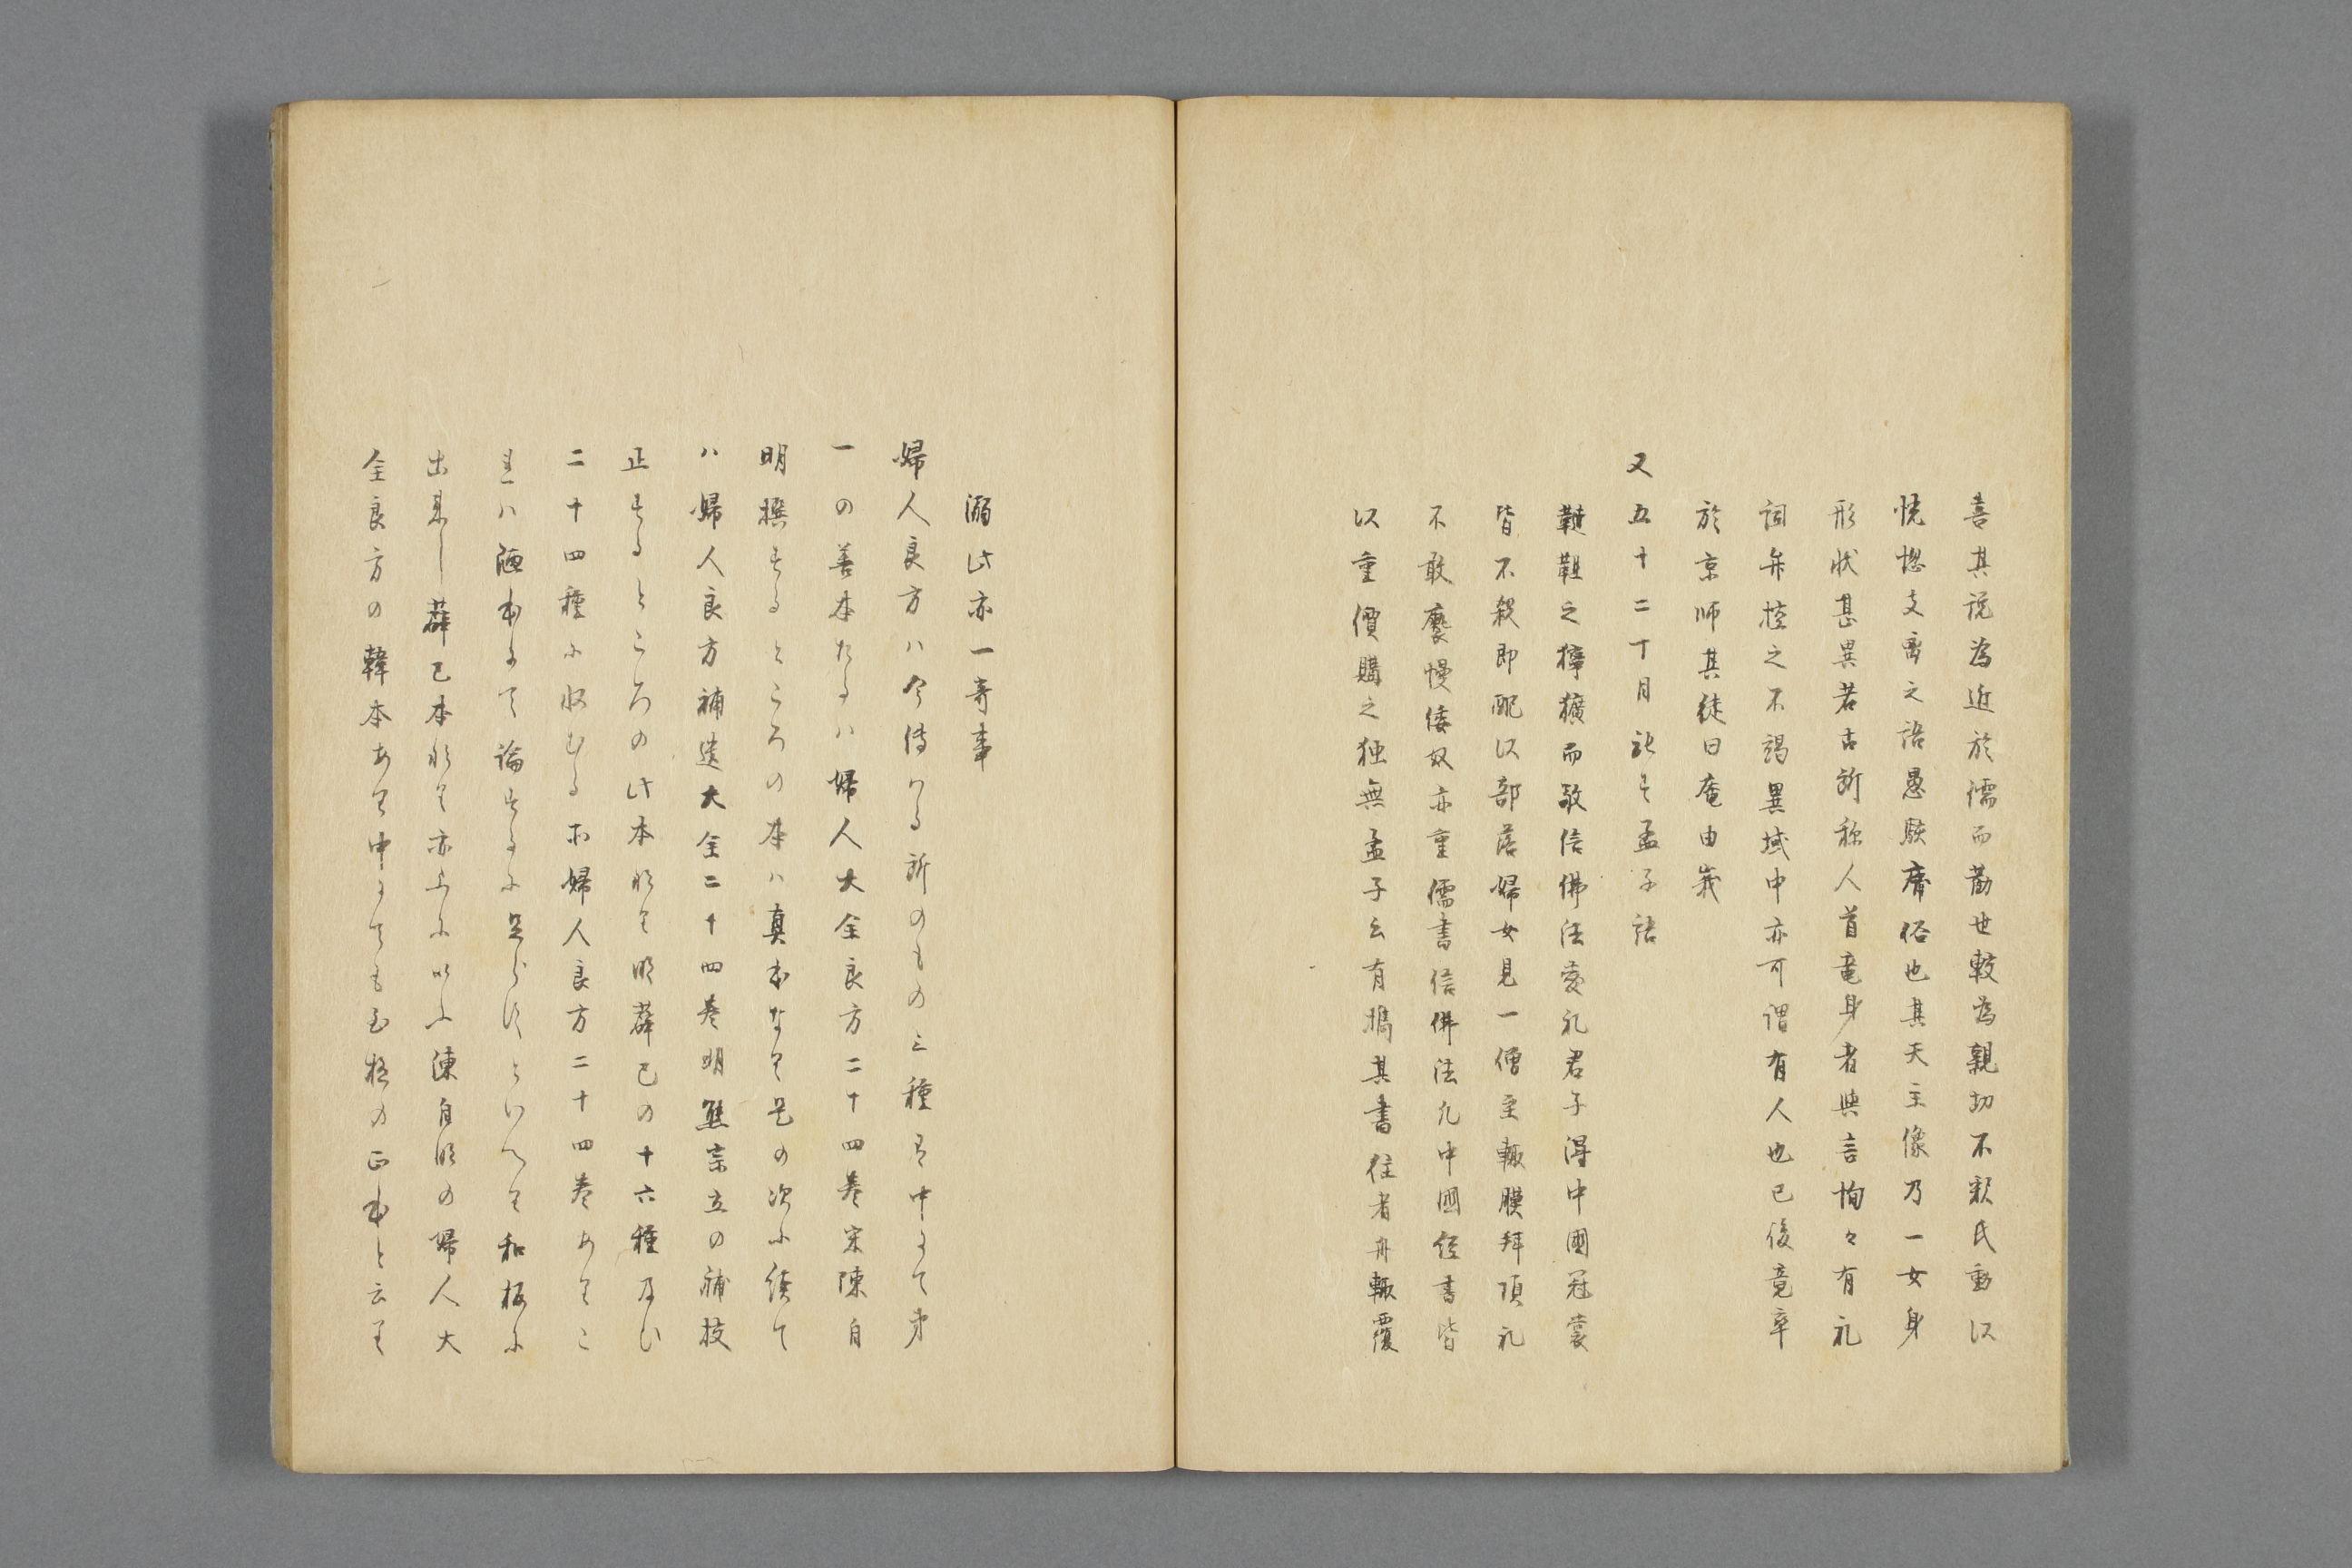 喜其説為近於儒而勸世較為親切不釈氏動以
恍惚支离之語愚駭庸俗也其天主像乃一女身
形状甚異若古所称人首竜身者與言恂々有礼
詞弁扣之不竭異域中亦可謂有人也已後竟卒
於京师其徒曰庵由峩
又五十二丁月孟子語
韃靼之獰獷而敬信佛法愛礼君子得中國冠裳
皆不殺即配以部落婦女見一僧至輒膜拜頂礼
不敢褻慢倭奴亦重儒書信佛法凡中國経書皆
以重價購之独無孟子云有携其書徃者舟輒覆
溺此亦一奇事
婦人良方ハ今傳ハる所のもの三種有中にて第
一の善本たるハ婦人大全良方二十四巻宋陳自
明撰するところの本ハ真本なり是の次に續て
ハ婦人良方補遺大全二十四巻明熊宗立の補技
正するところの此本なり明薛己の十六種及ひ
二十四種に收むる木婦人良方二十四巻ありこ
れハ陋本にて論するに足らすといへり和板に
出来し薛己本なり亦上にいふ陳自明の婦人大
全良方の韓本あり中にても至極の正本と云り